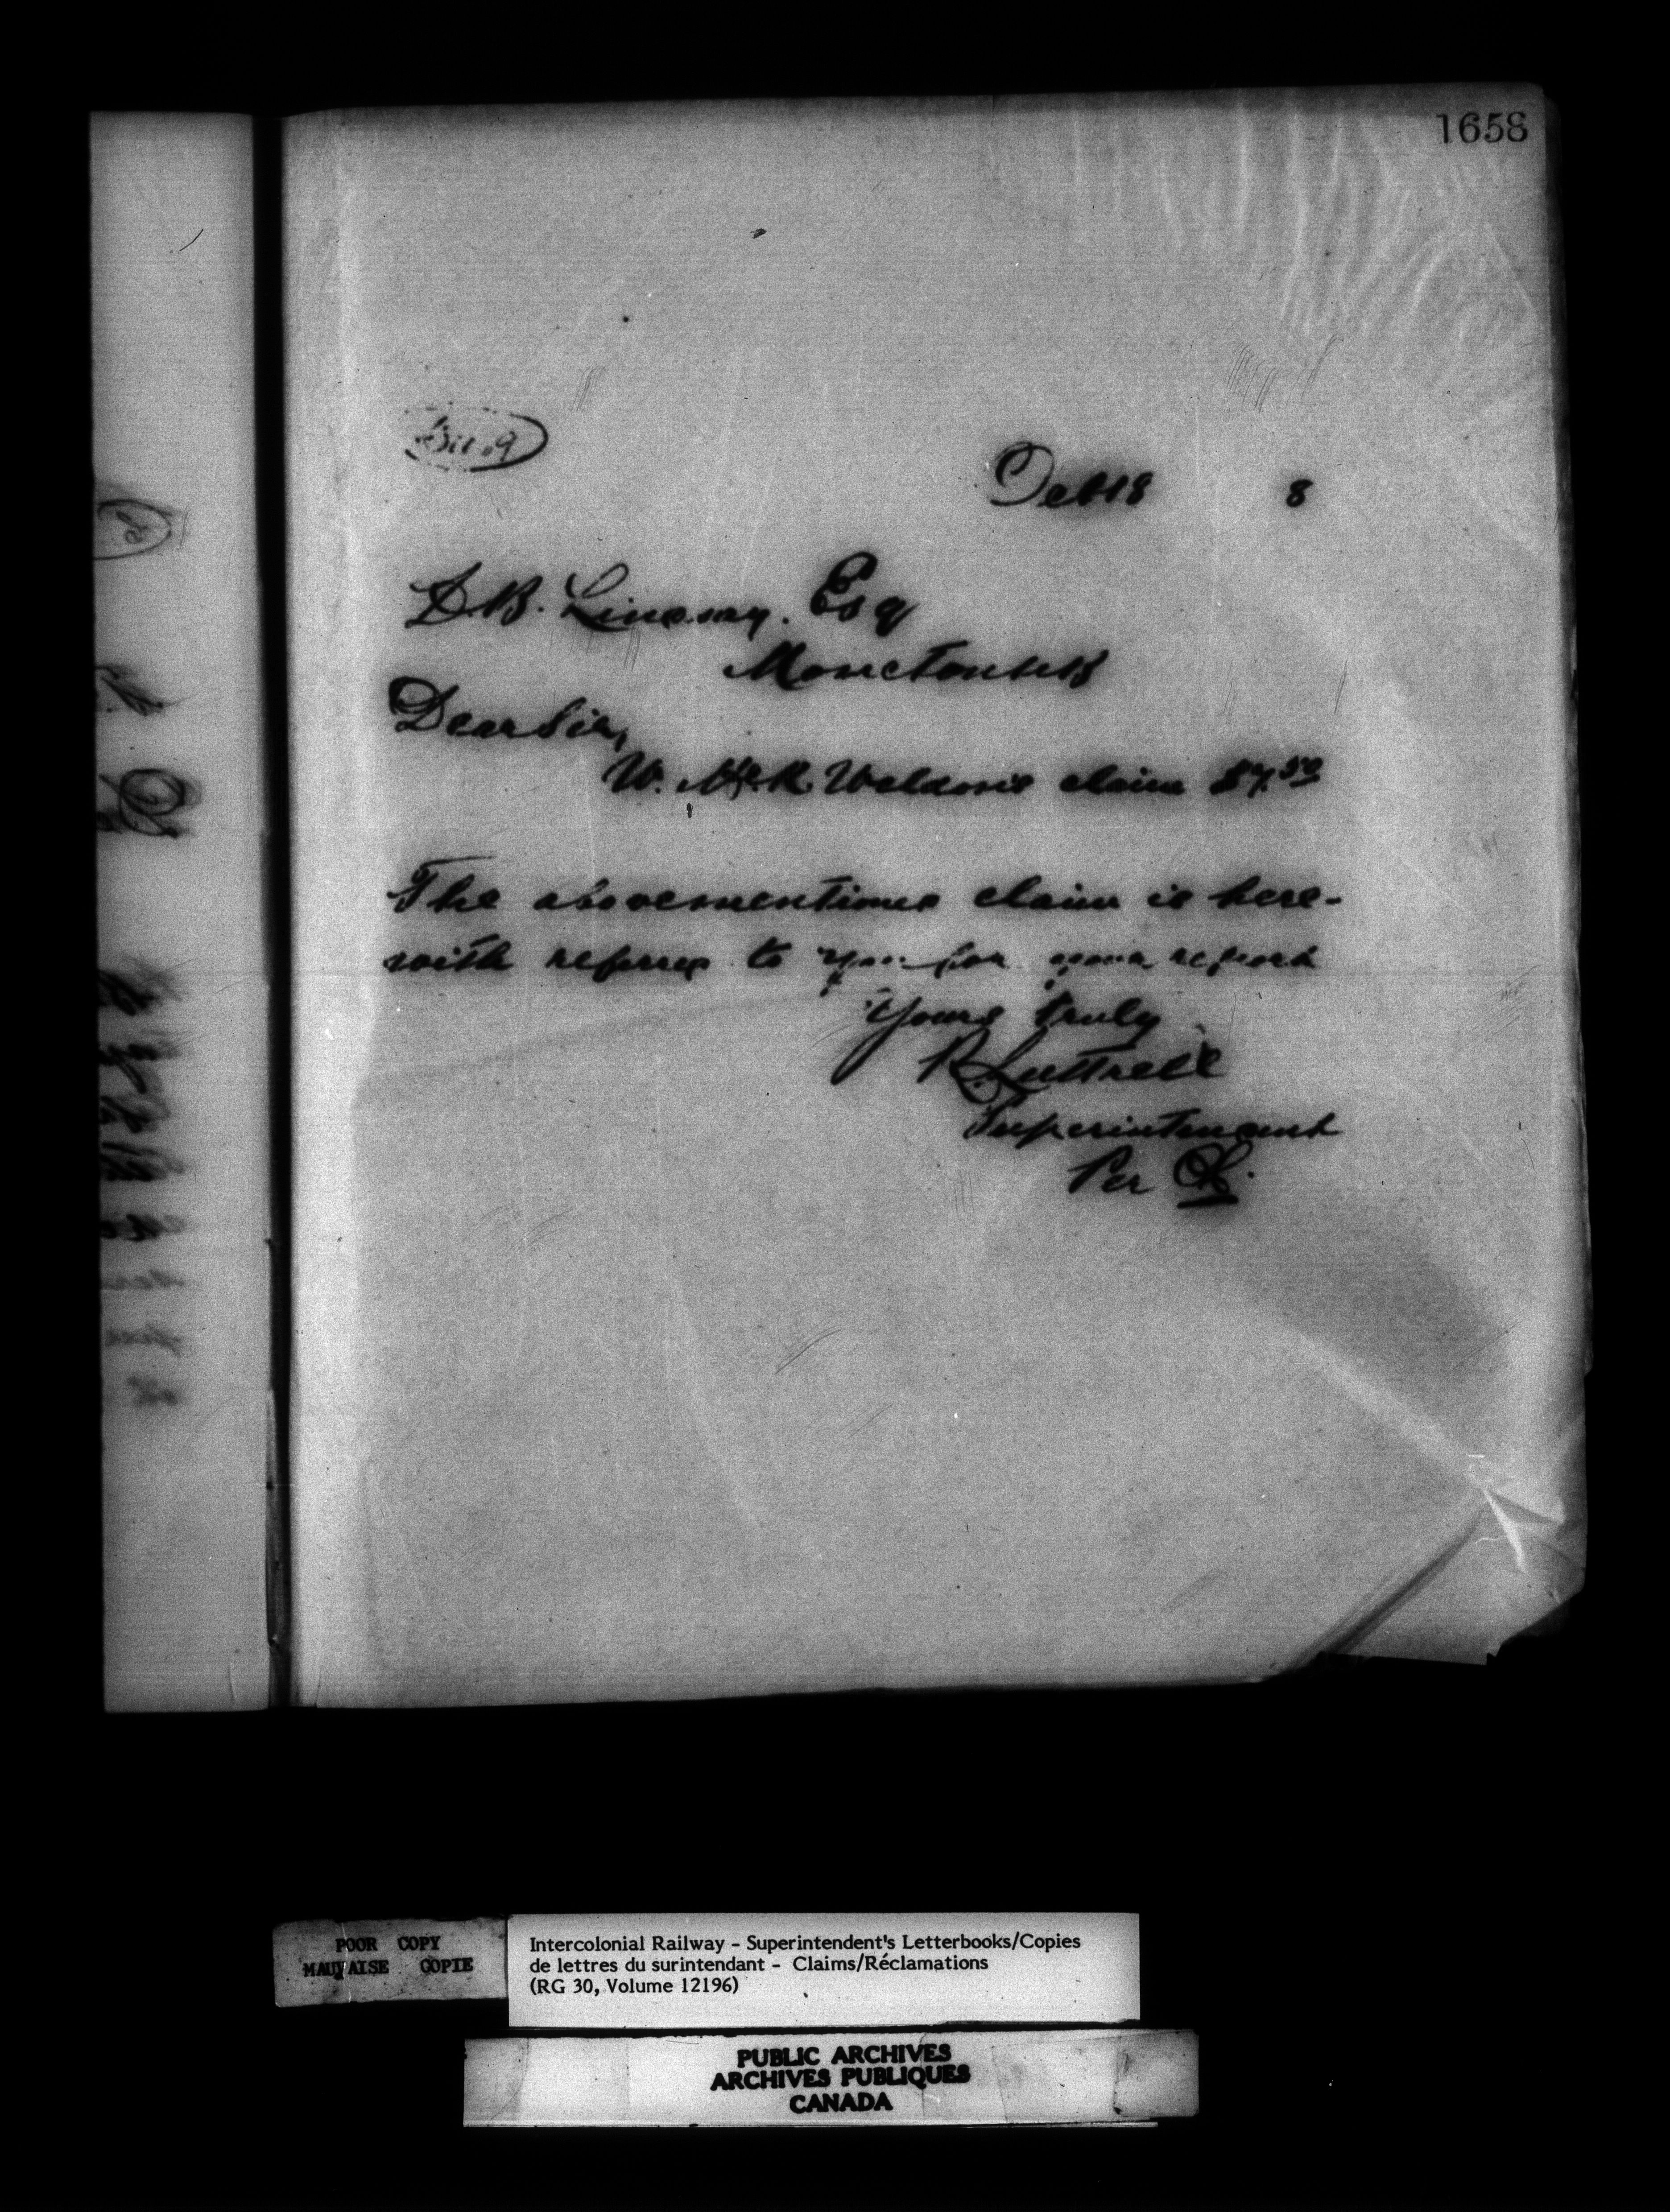 1658
Oct 18 8
D.B. Lindsay. Esq
Moncton NB
Dear Sir,
W. H. R. Weldon's claim $7.50
The abovementioned claim is here-
with referred to you for your report
Yours truly
R. Luttrell
Superintendent
Per
POOR COPY
MAUVAISE COPIE
Intercolonial Railway - Superintendent's Letterbooks/Copies
de lettres du surintendant - Claims/Réclamations
(RG 30, Volume 12196)
PUBLIC ARCHIVES
ARCHIVES PUBLIQUES
CANADA